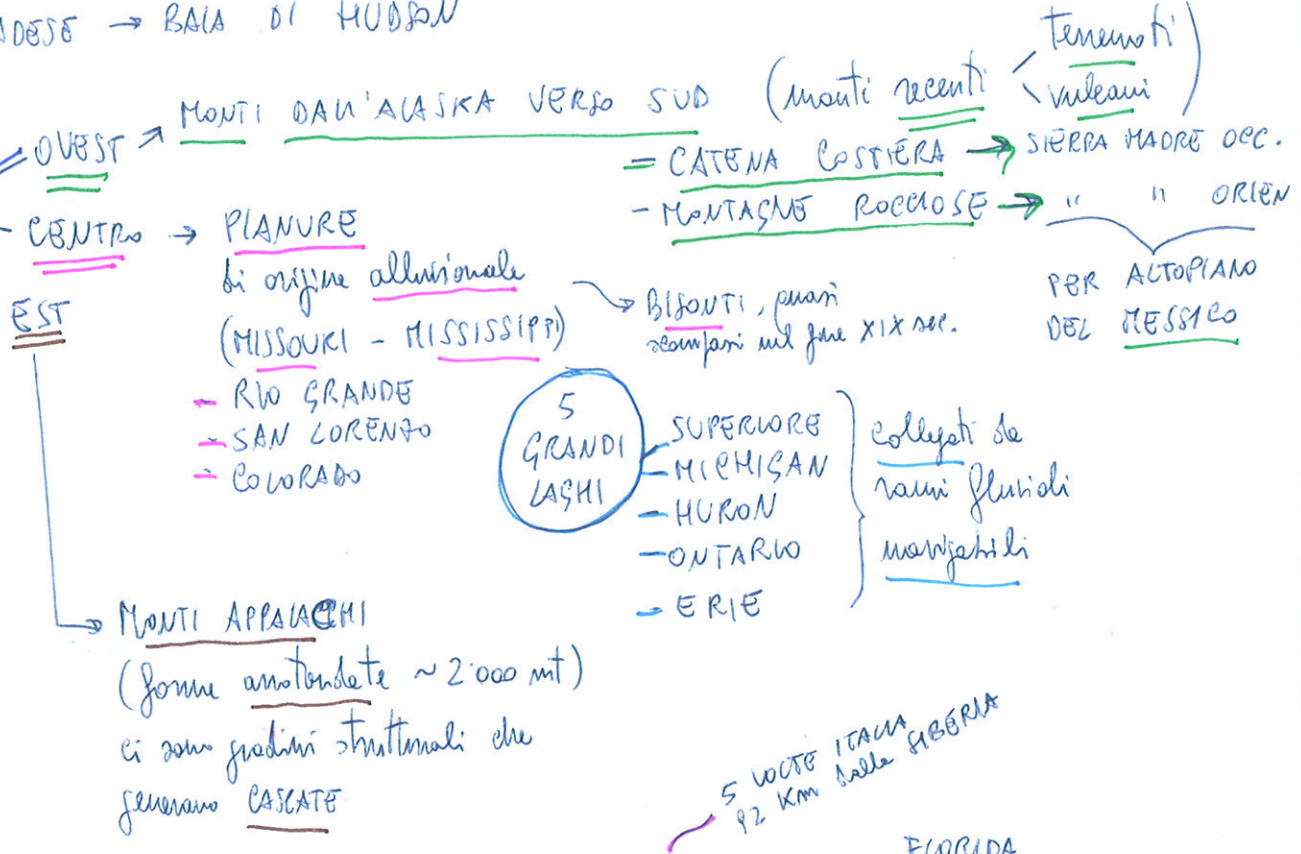 ADESE → BAIA DI HUDSON
OVEST → MONTI DALL'ALASKA VERSO SUD (monti recenti < terremoti
vulcani)
= CATENA COSTIERA → SIERRA MADRE OCC.
- MONTAGNE ROCCIOSE → " " ORIEN
PER ALTOPIANO
DEL MESSICO
- CENTRO → PIANURE
di origine alluvionale
(MISSOURI - MISSISSIPPI)
→ BISONTI, quasi
scomparsi nel fine XIX sec.
- RIO GRANDE
- SAN LORENZO
- COLORADO
5
GRANDI
LAGHI
- SUPERIORE
- MICHIGAN
- HURON
- ONTARIO
- ERIE
collegati da
rami fluviali
navigabili
EST
→ MONTI APPALACHI
(forme arrotondate ~ 2'000 mt)
ci sono gradini strutturali che
generano CASCATE
5 VOLTE ITALIA
92 Km dalla SIBERIA
FLORIDA